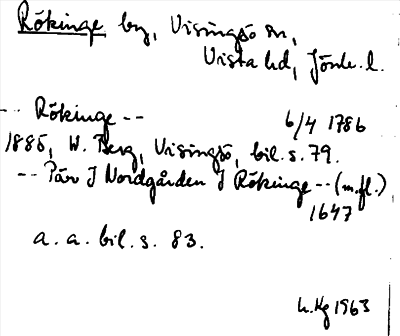 Rökinge by, Visingsö sn,
Vista hd, Jönk. l.
-- Rökinge --
6/4 1786
1885, W. Berg, Visingsö, bil. s. 79.
-- Pär I Nordgården I Rökinge -- (m.fl.)
1647
a. a. bil. s. 83.
h.Kg 1963